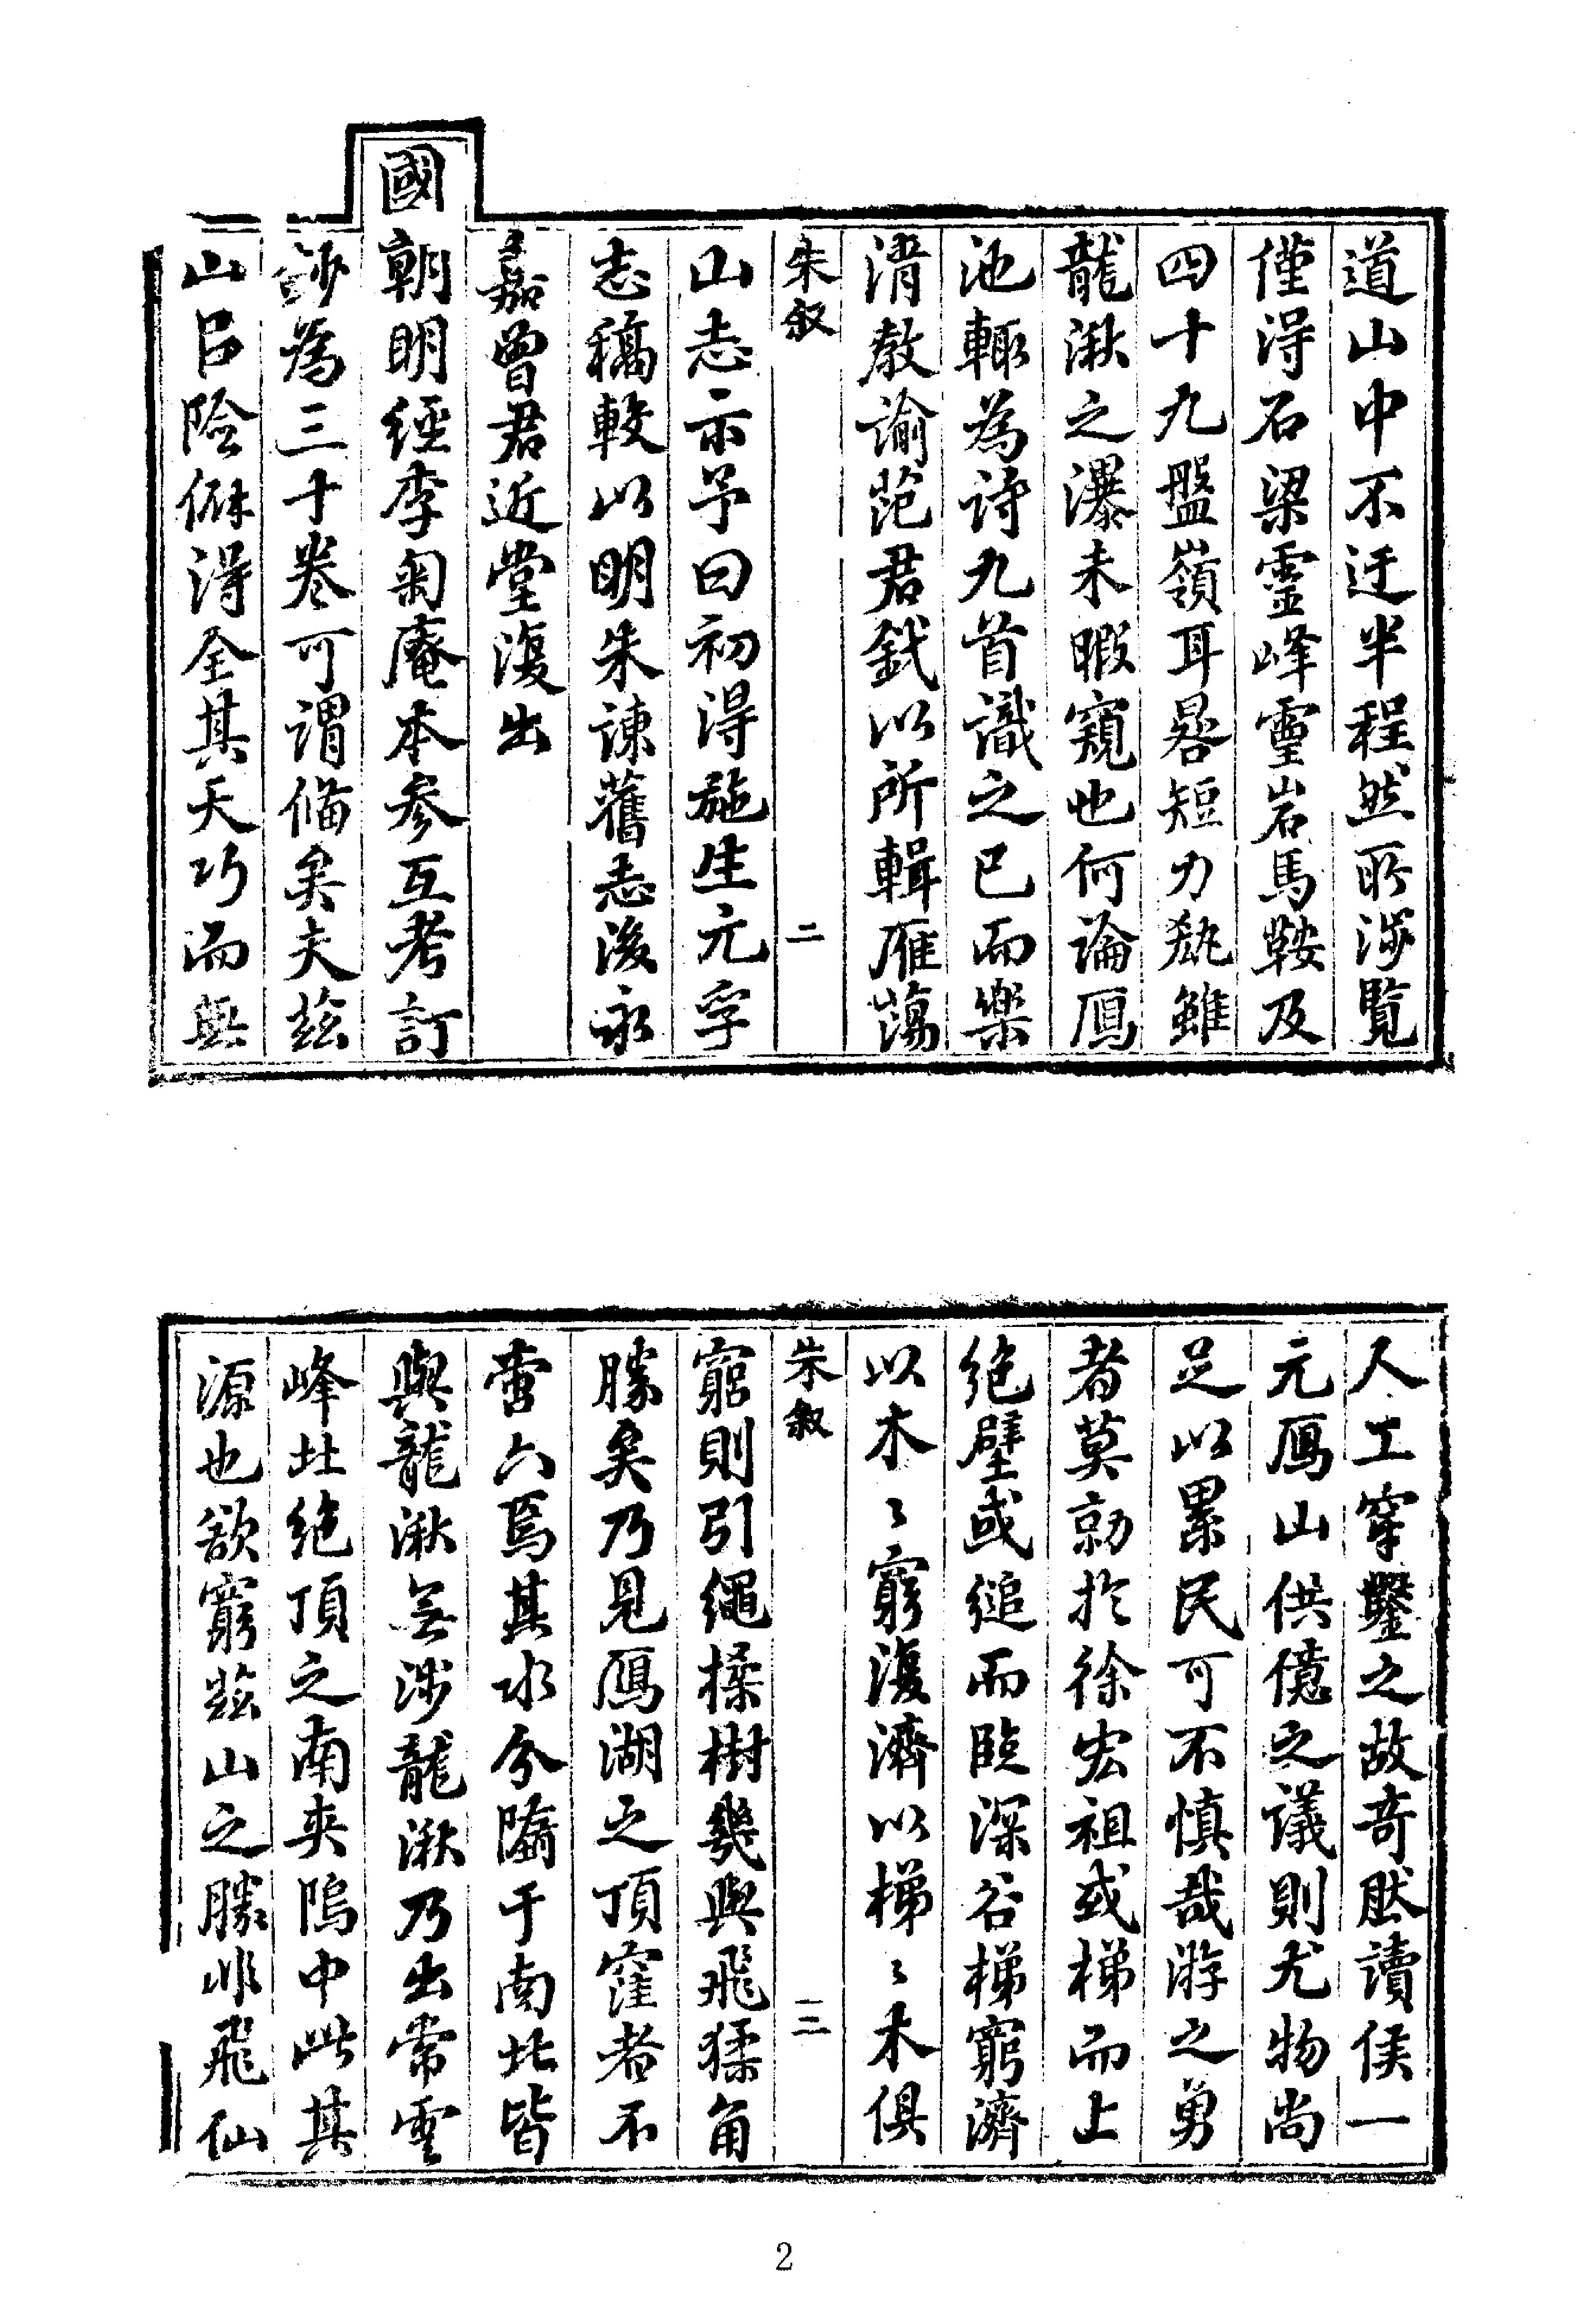 道山中不迂半程然所涉覧
僅得石梁靈峰靈岩馬鞍及
四十九盤嶺耳晷短力疲雖
龍湫之瀑未暇窺也何論鴈
池輙為詩九首識之已而樂
清教諭范君錢以所輯雁蕩
朱叙 二
山志示予曰初得施生元孚
志稿較以明朱諫舊志後永
嘉曾君近堂復出
國朝明經李菊庵本參互考訂
鈔為三十卷可謂備矣夫茲
山以險僻得全其天巧而無
人工穿鑿之故奇肰讀侯一
元鴈山供億之議則尤物尚
足以累民可不慎哉游之勇
者莫勍於徐宏祖或梯而上
絶壁或縋而臨深谷梯窮濟
以木〻窮復濟以梯〻木俱
朱叙 三
窮則引繩揉樹幾與飛猱角
勝矣乃見鴈湖之頂窪者不
啻六焉其水分隤于南北皆
與龍湫無涉龍湫乃出常雲
峰北絶頂之南夾隖中此其
源也欲窮茲山之勝非飛仙
2